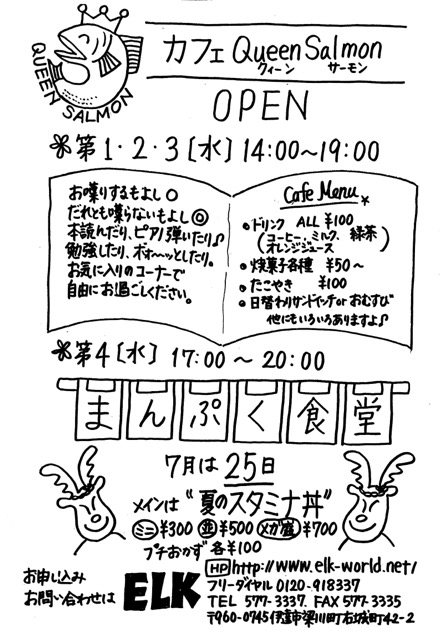 QUEEN SALMON
カフェ Queen Salmon
クィーン サーモン
OPEN
第1・2・3[水] 14:00〜19:00
お喋りするもよし○
だれとも喋らないもよし◎
本読んだり、ピアノ弾いたり♪
勉強したり、ボォ〜ッとしたり。
お気に入りのコーナーで
自由にお過ごしください。
Cafe Menu
・ドリンク ALL ¥100
(コーヒー、ミルク、緑茶
オレンジジュース)
・焼菓子各種 ¥50〜
・たこやき ¥100
・日替わりサンドイッチor おむすび
他にもいろいろありますよ♪
第4[水] 17:00 〜 20:00
まんぷく食堂
7月は25日
メインは"夏のスタミナ丼"
ミニ¥300 並¥500 メガ盛¥700
プチおかず 各¥100
お申し込み
お問い合わせは
ELK
HP http://www.elk-world.net/
フリーダイヤル 0120-918337
TEL 577-3337. FAX 577-3335
〒960-0745 伊達市梁川町右城町42-2